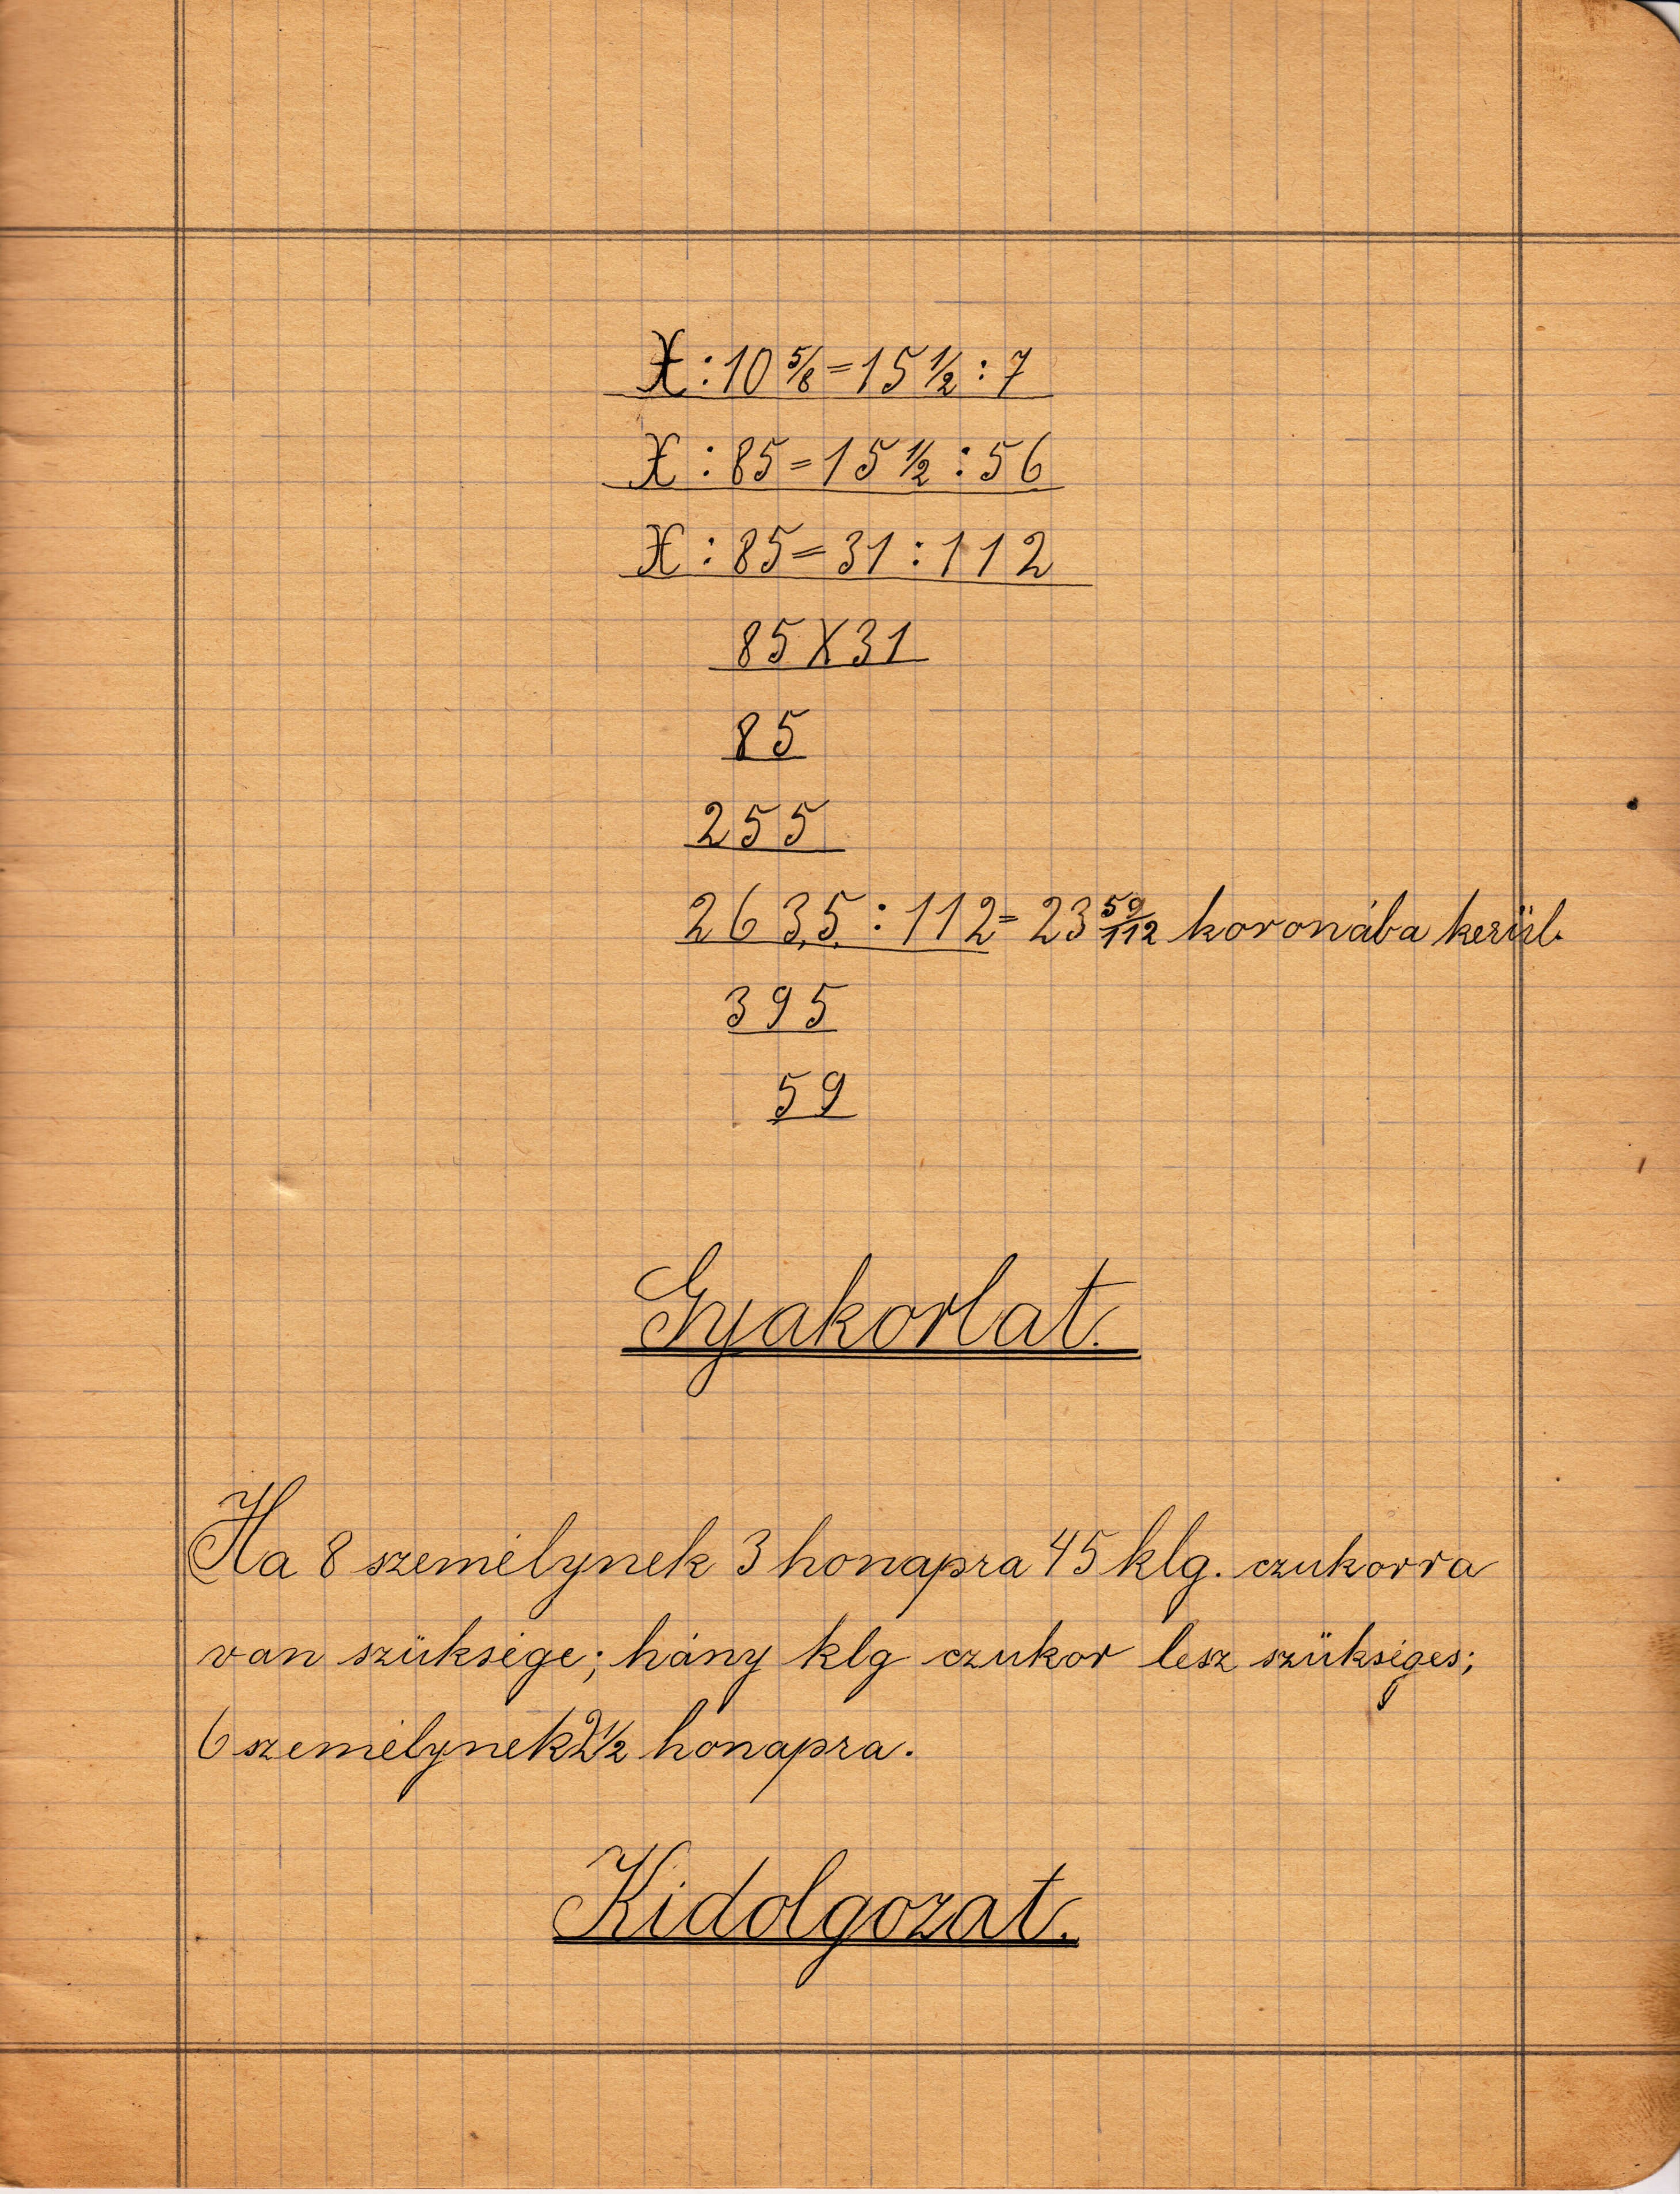 X : 10 5/8 = 15 1/2 : 7
X : 85 = 15 1/2 : 56
X : 85 = 31 : 112
85 X 31
85
255
2635 : 112 = 23 59/112 koronába kerül.
395
59
Gyakorlat.
Ha 8 személynek 3 honapra 45 klg. czukorra
van szüksége; hány klg czukor lesz szükséges;
6 személynek 2 1/2 honapra.
Kidolgozat.